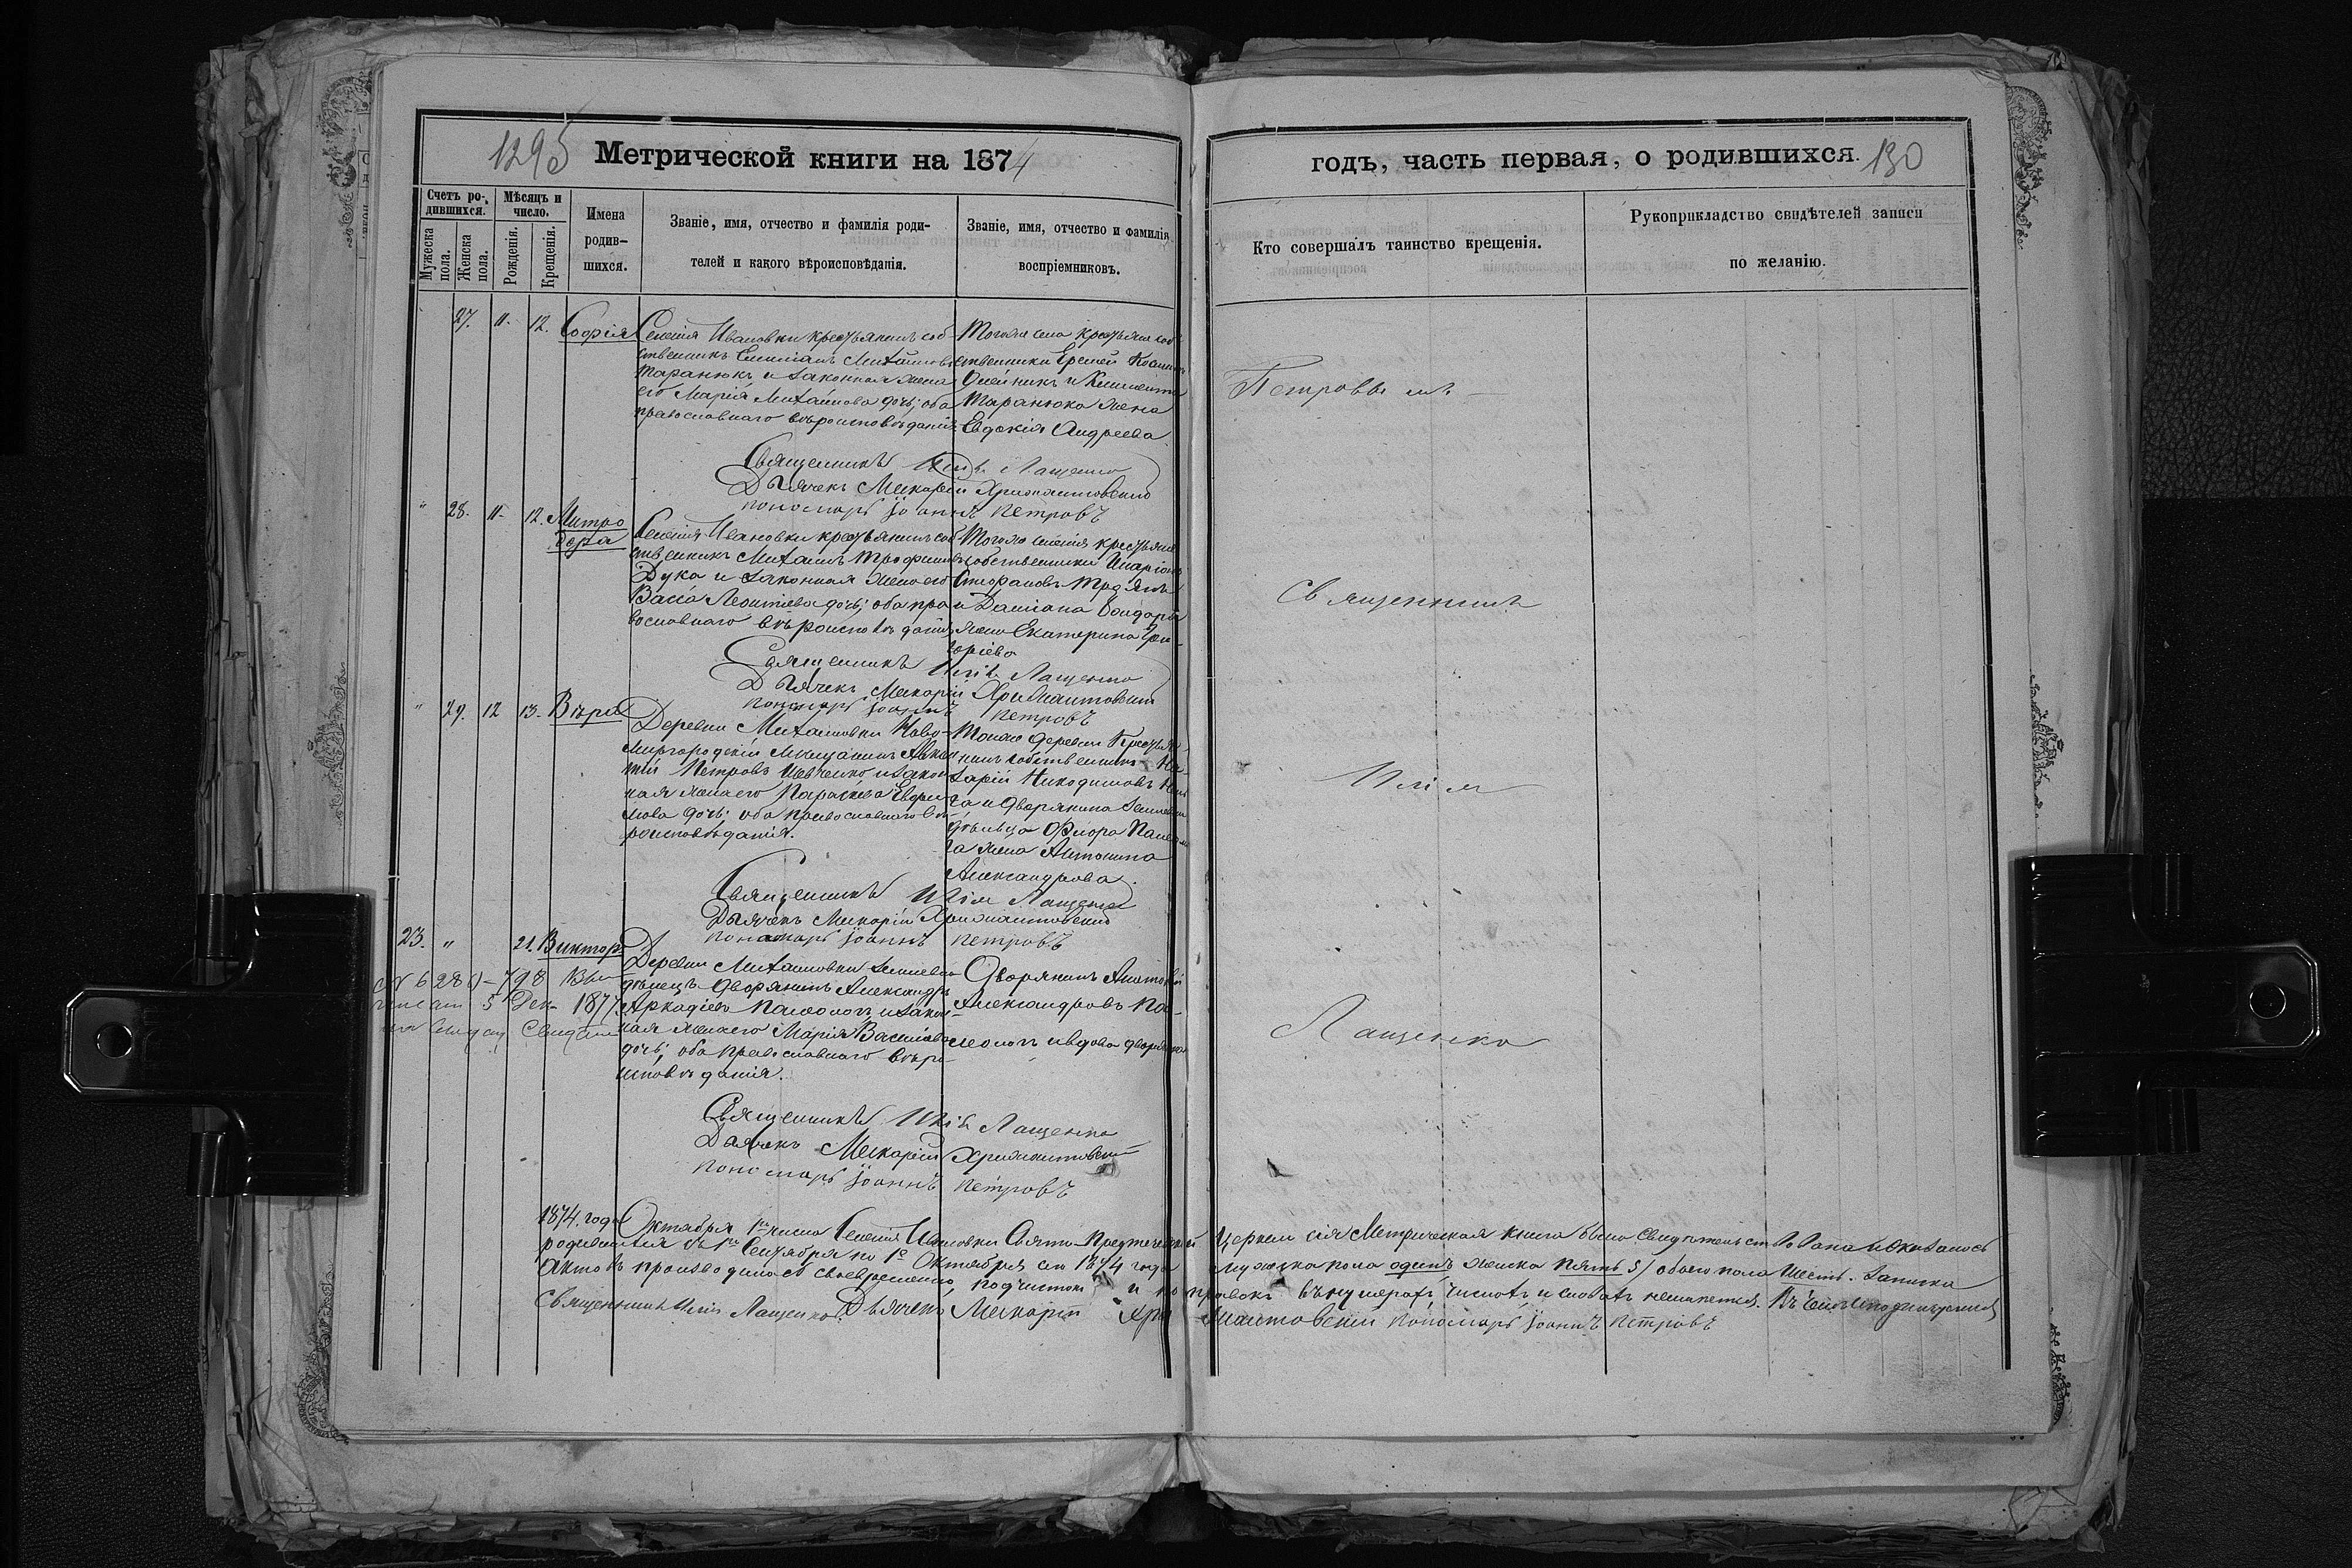 1295 Метрической книги на 1874
годъ, часть первая, о родившихся. 130
Счетъ родившихся.
Мужеска пола.
Женска пола.
Мѣсяцъ и число.
Рожденія.
Крещенія.
Имена родившихся.
Званіе, имя, отчество и фамилія родителей и какого вѣроисповѣданія.
Званіе, имя, отчество и фамилія воспріемниковъ.
Кто совершалъ таинство крещенія.
Рукоприкладство свидѣтелей записи по желанію.
27. 11. 12. Софія
Селенія Ивановки крестьянинъ соб
ственникъ Емиліанъ Михайловъ
Таранюкъ и законная жена
его Марія Михайлова дочь; оба
православнаго вѣроисповѣданія
Тогоже села крестьяне соб
ственники Еремей
Олейникъ и Климента
Таранюка жена
Евдокія Андреева
Священникъ Илія Лащенко
Дьячекъ Макарій
пономарь Іоаннъ Петровъ
" 28. 11. 12. Митро
дора
Селенія Ивановки крестьянинъ соб
ственникъ Михаилъ Трофимовъ
Дука и законная жена его
Васса Леонтіева дочь; оба пра
вославнаго вѣроисповѣданія
Тогоже селенія крестьяне
собственники Иларіонъ
Стефановъ
и Даміана Бондаря
жена Екатерина Гри
горіева
Священникъ Илія Лащенко
Дьячекъ Макарій
пономарь Іоаннъ Петровъ
" 29. 12 13. Вѣра
Деревни Михайловки Ново-
миргородскій мещанинъ
Петровъ Шевченко и закон
ная жена его Параскева
дочь; оба православнаго вѣ-
роисповѣданія.
Тойже деревни крестья-
нинъ собственникъ На-
зарій Никодимовъ
и дворянина землевла
дѣльца Флора
жена Антонина
Александрова.
Священникъ Илія Лащенко
Дьячекъ Макарій
пономарь Іоаннъ Петровъ
23. " 21. Викторъ
Деревни Михайловки землевла
дѣлецъ дворянинъ Александръ
Аркадіевъ и закон-
ная жена его Марія Василіева
дочь; оба православнаго вѣро-
исповѣданія.
Дворянинъ
Александровъ
и вдова дворянка
№ 6280-798
5 Дек 1877
Священникъ Илія Лащенко
Дьячекъ Макарій
пономарь Іоаннъ Петровъ
Петровъ
Священникъ
Илія
Лащенко
1874. года Октября 1го числа Селенія Ивановки Свято-Предтечевской церкви сія Метрическая книга была свидѣтельствована и оказалось
родившихся съ 1го Сентября по 1е Октября сего 1874 года мужска пола одинъ женска пять 5/ обоего пола шесть. Записка
актовъ производилась своевременно, подчистокъ и поправокъ въ нумерахъ, числахъ и словахъ неимеется. Въ чемъ и подписуемся
Священникъ Илія Лащенко. Дьячекъ Макарій пономарь Іоаннъ Петровъ